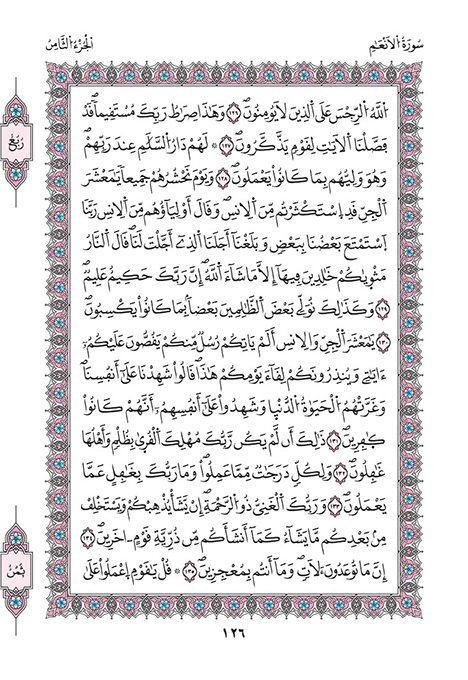 سُورَةُ الْأَنْعَامِ
الْجُزْءُ الثَّامِنُ
اَللَّهُ الرِّجْسَ عَلَى الذِينَ لَا يُومِنُونَ ١٢٦ وَهَٰذَا صِرَٰطُ رَبِّكَ مُسْتَقِيماً قَدْ
فَصَّلْنَا اَلَايَٰتِ لِقَوْمٍ يَذَّكَّرُونَ ١٢٧ * لَهُمْ دَارُ السَّلَٰمِ عِندَ رَبِّهِمْ
وَهُوَ وَلِيُّهُم بِمَا كَانُواْ يَعْمَلُونَ ١٢٨ وَيَوْمَ نَحْشُرُهُمْ جَمِيعاً يَٰمَعْشَرَ
اَلْجِنِّ قَدِ اِسْتَكْثَرْتُم مِّنَ اَلِانسِ وَقَالَ أَوْلِيَآؤُهُم مِّنَ اَلِانسِ رَبَّنَا
اَسْتَمْتَعَ بَعْضُنَا بِبَعْضٍ وَبَلَغْنَآ أَجَلَنَا اَلذِےٓ أَجَّلْتَ لَنَا قَالَ اَلنَّارُ
مَثْوَيٰكُمْ خَٰلِدِينَ فِيهَآ إِلَّا مَا شَآءَ اَللَّهُ إِنَّ رَبَّكَ حَكِيمٌ عَلِيمٌ
١٢٩ وَكَذَٰلِكَ نُوَلِّے بَعْضَ اَلظَّٰلِمِينَ بَعْضاً بِمَا كَانُواْ يَكْسِبُونَ
١٣٠ يَٰمَعْشَرَ اَلْجِنِّ وَالِانسِ أَلَمْ يَاتِكُمْ رُسُلٌ مِّنكُمْ يَقُصُّونَ عَلَيْكُمُۥٓ
ءَايَٰتِے وَيُنذِرُونَكُمْ لِقَآءَ يَوْمِكُمْ هَٰذَا قَالُواْ شَهِدْنَا عَلَىٰٓ أَنفُسِنَا
وَغَرَّتْهُمُ اُلْحَيَوٰةُ اُلدُّنْيَا وَشَهِدُواْ عَلَىٰٓ أَنفُسِهِمُۥٓ أَنَّهُمْ كَانُواْ
كَٰفِرِينَ ١٣١ ذَٰلِكَ أَن لَّمْ يَكُن رَّبُّكَ مُهْلِكَ اَلْقُرَىٰ بِظُلْمٍ وَأَهْلُهَا
غَٰفِلُونَ ١٣٢ وَلِكُلٍّ دَرَجَٰتٌ مِّمَّا عَمِلُواْ وَمَا رَبُّكَ بِغَٰفِلٍ عَمَّا
يَعْمَلُونَ ١٣٣ وَرَبُّكَ اَلْغَنِيُّ ذُو اُلرَّحْمَةِ إِنْ يَّشَأْ يُذْهِبْكُمْ وَيَسْتَخْلِفْ
مِنۢ بَعْدِكُم مَّا يَشَآءُ كَمَآ أَنشَأَكُم مِّن ذُرِّيَّةِ قَوْمٍ اٰخَرِينَ ١٣٤
إِنَّ مَا تُوعَدُونَ لَأٓتٍ وَمَآ أَنتُم بِمُعْجِزِينَ ١٣٥ * قُلْ يَٰقَوْمِ اِعْمَلُواْ عَلَىٰ
رُبُعُ
ثُمُنُ
١٢٦